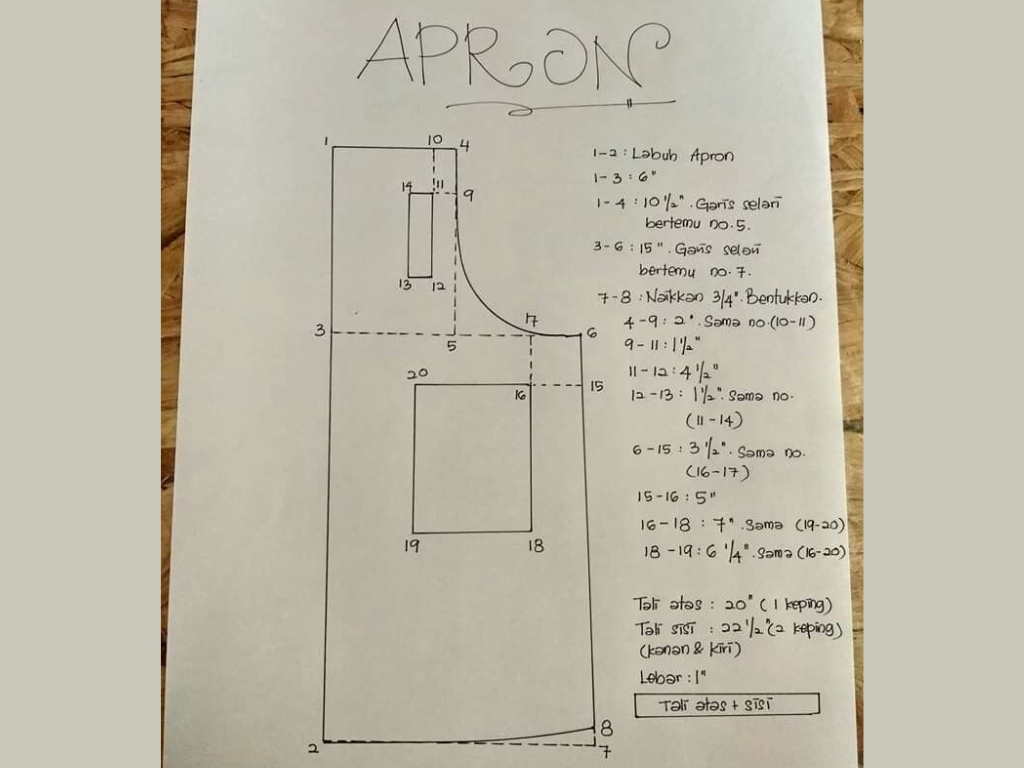 APRON
1 10 4
14 11 9
13 12
3 5 17 6
20 16 15
19 18
2 8
7
1-2 : Labuh Apron
1-3 : 6"
1-4 : 10 1/2". Garis selari
bertemu no.5.
3-6 : 15". Garis selari
bertemu no.7.
7-8 : Naikkan 3/4". Bentukkan.
4-9 : 2". Sama no.(10-11)
9-11 : 1 1/2"
11-12 : 4 1/2"
12-13 : 1 1/2". Sama no.
(11-14)
6-15 : 3 1/2". Sama no.
(16-17)
15-16 : 5"
16-18 : 7". Sama (19-20)
18-19 : 6 1/4". Sama (16-20)
Tali atas : 20" (1 keping)
Tali sisi : 22 1/2" (2 keping)
(kanan & kiri)
Lebar : 1"
Tali atas + sisi